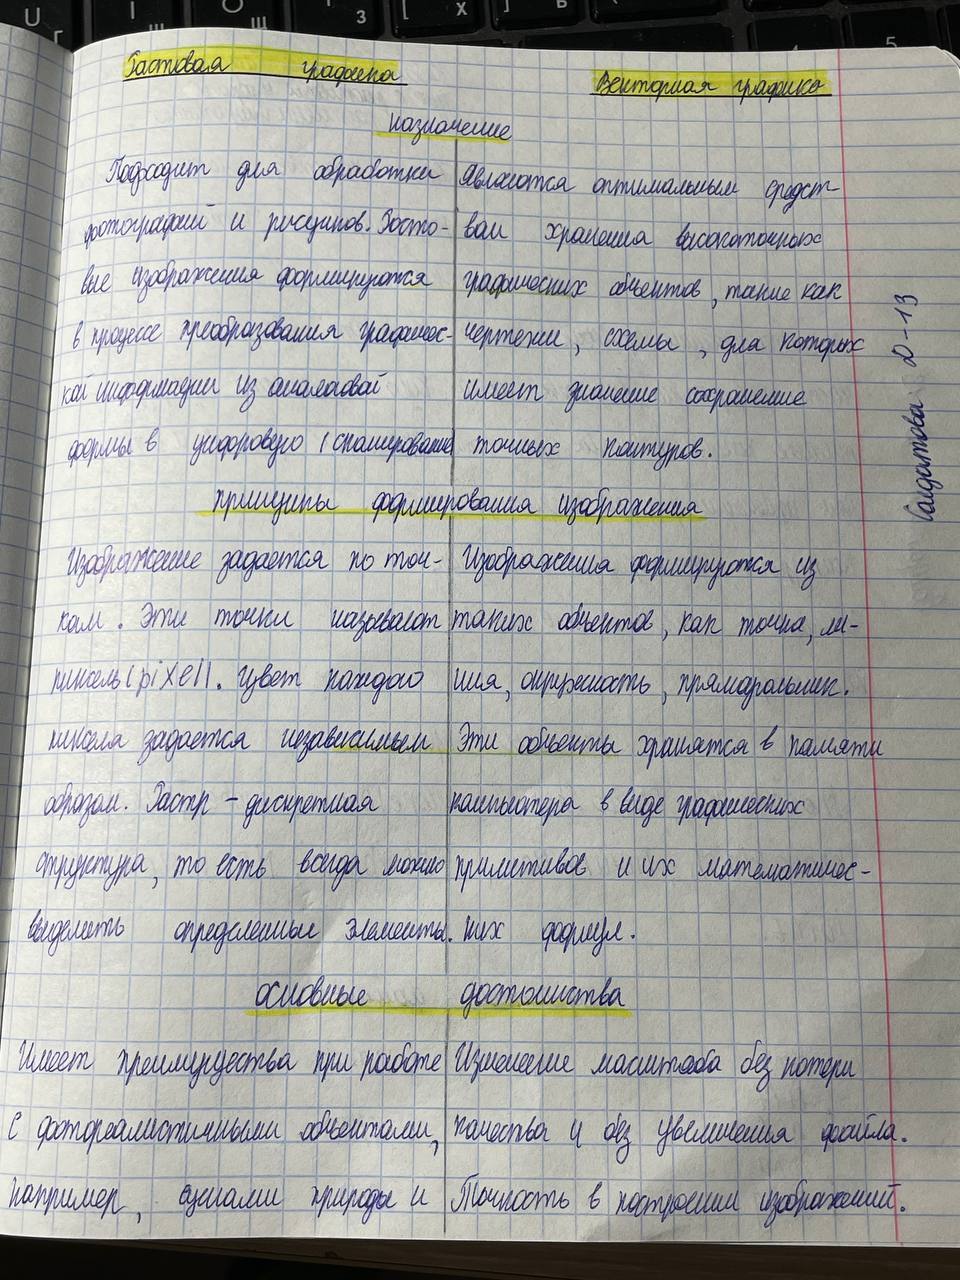 Растовая графика
Векторная графика
назначение
Подходит для обработки
фотографий и рисунков. Расто-
вые изображения формируются
в процессе преобразования графичес-
кой информации из аналоговой
формы в цифоровую (сканирование
Являются оптимальным средст-
вам хранения высокоточных
графических объектов, такие как
чертежи, схемы, для которых
имеет значение сохранение
точных контуров.
принципы формирования изображения
Изображение задается по точ-
кам. Эти точки называют
пиксель (pixel). Цвет каждого
пикселя задается независимым
образом. Растр - дискретная
структура, то есть всегда можно
выделить определенные элементы.
Изображения формируются из
таких объектов, как точка, ли-
ния, окружность, прямарольник.
Эти объекты хранятся в памяти
компьютера в виде графических
примитивов и их математичес-
ких формул.
основные достоинства
Имеет преимущества при работе
с фотореалистичными объектами,
например, сценами природы и
Изменение масштаба без потери
качества и без увеличения файла.
Точность в построении изображений.
Салдатова Д-13